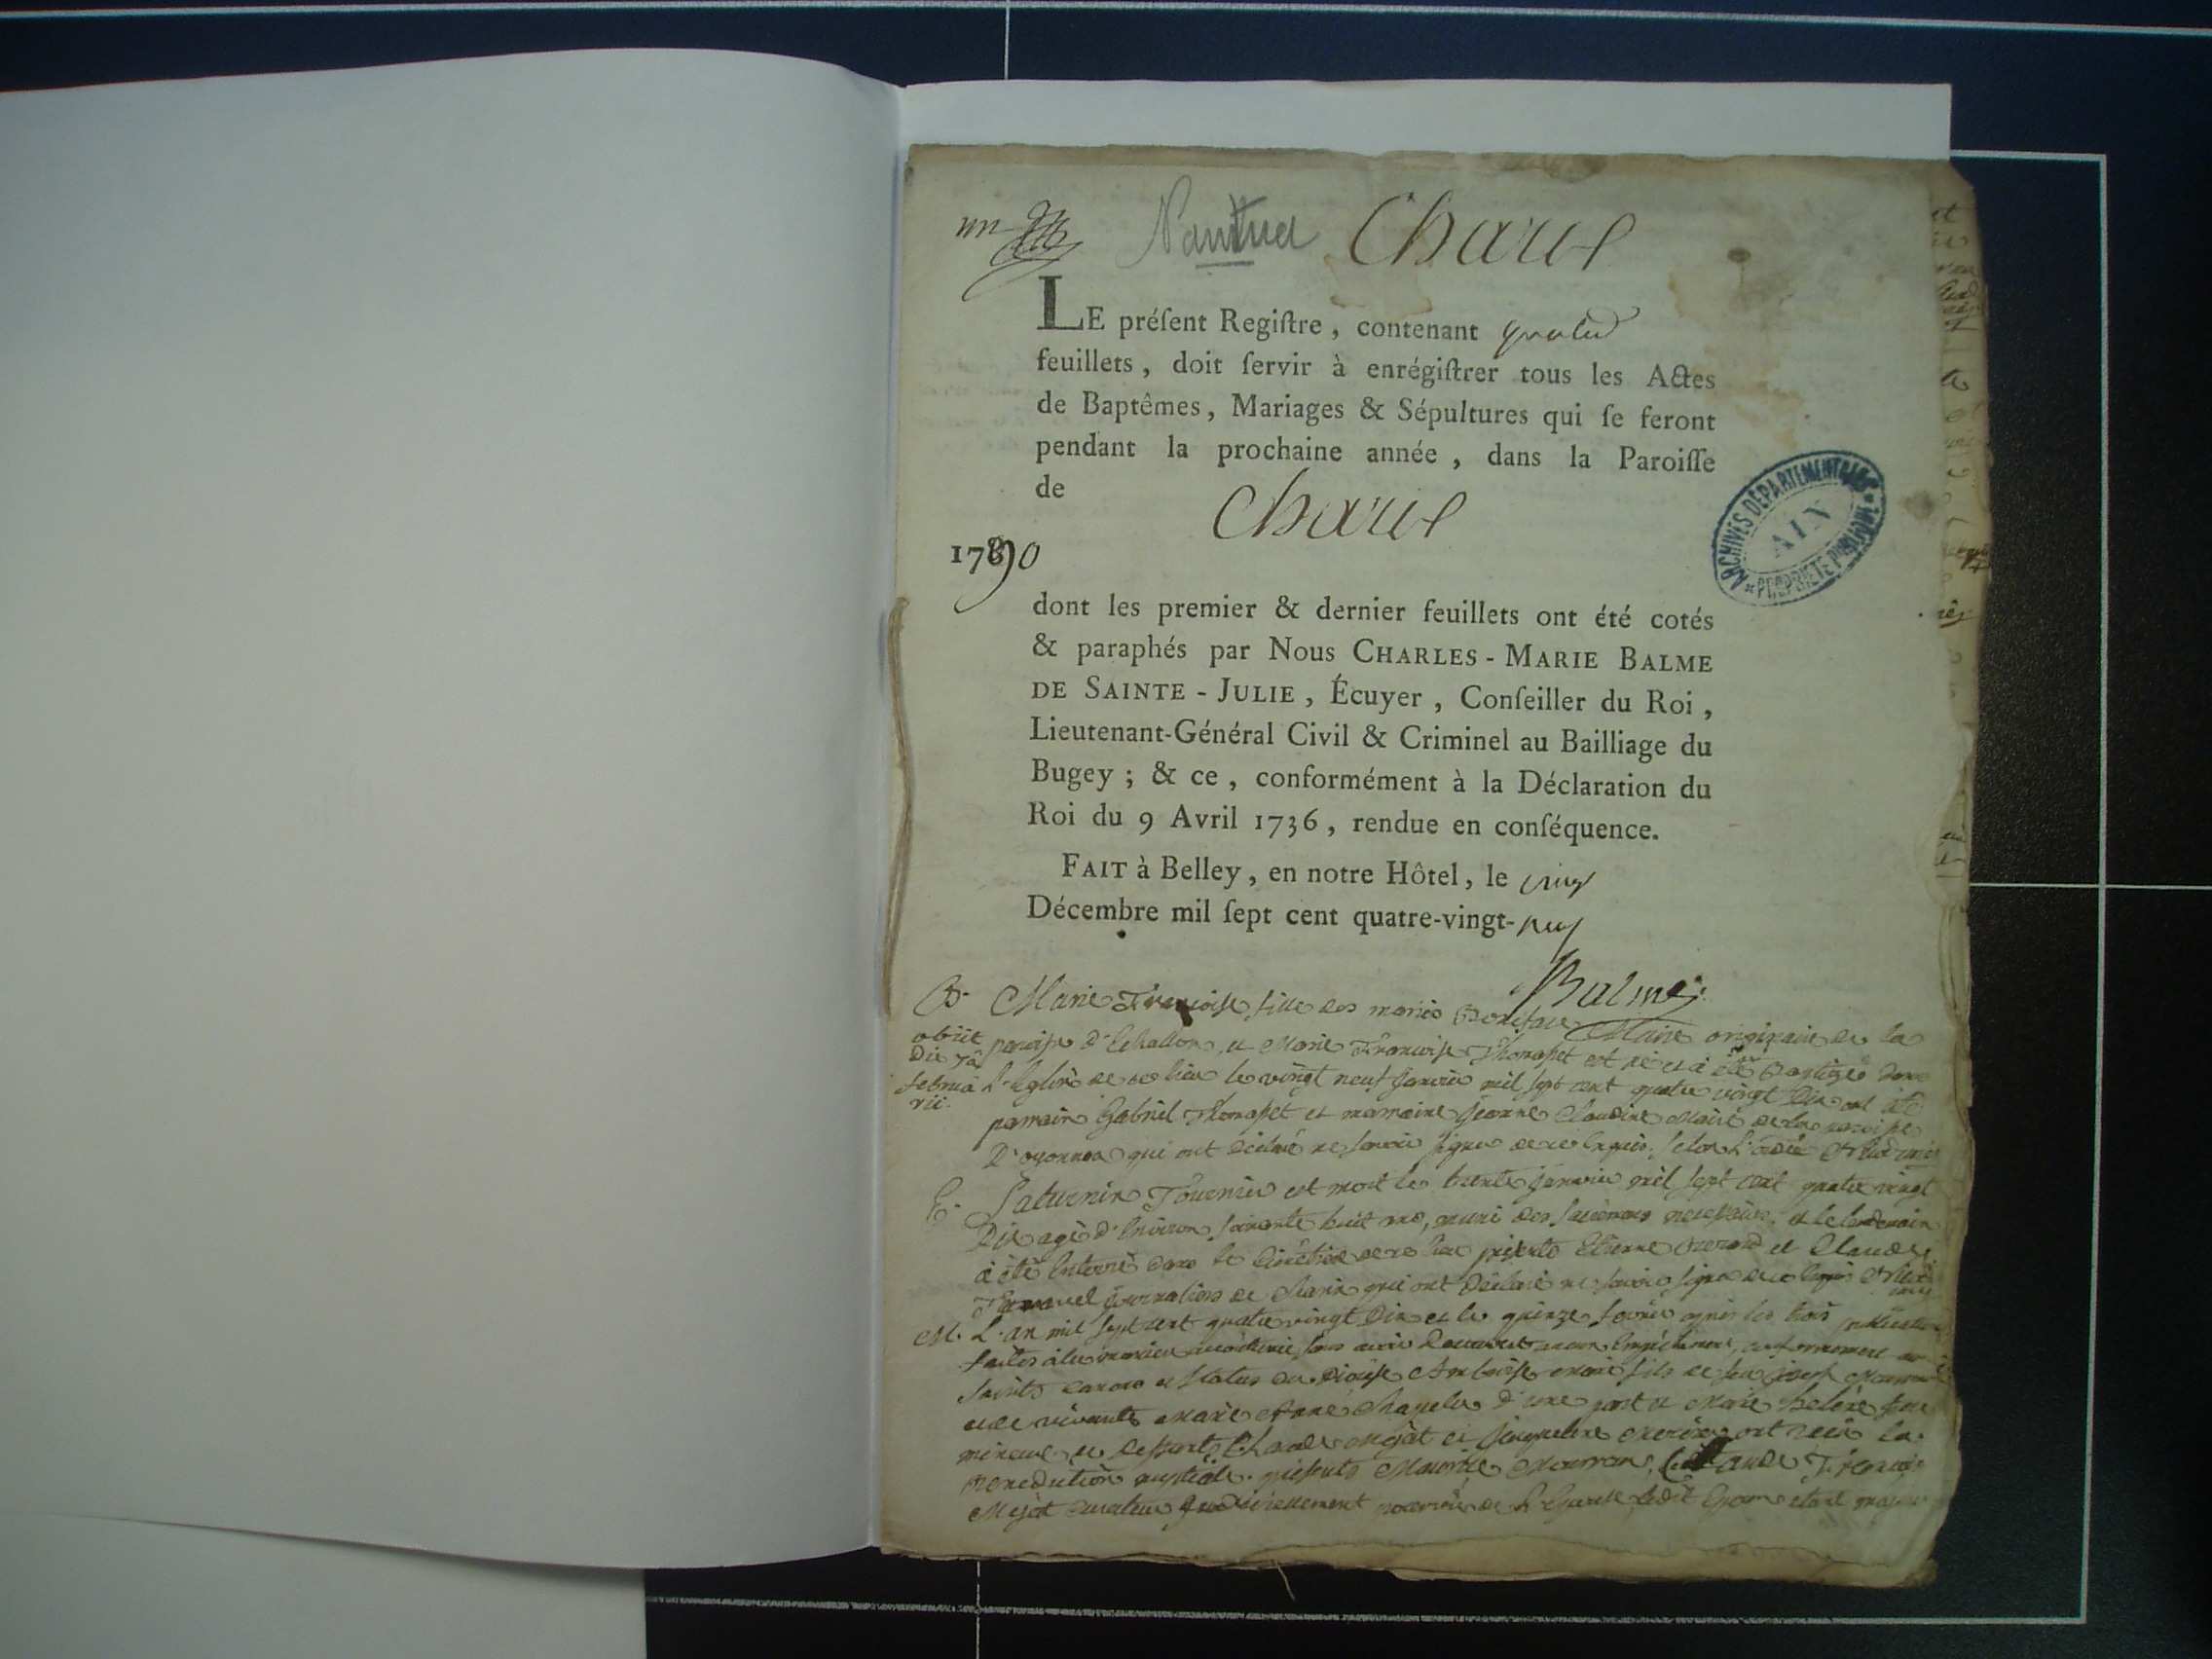 un
Nantua Charix
LE préſent Regiſtre, contenant quatre
feuillets, doit ſervir à enrégiſtrer tous les Actes
de Baptêmes, Mariages & Sépultures qui ſe feront
pendant la prochaine année, dans la Paroiſſe
de Charix
1790
ARCHIVES DÉPARTEMENTALES
AIN
PROPRIÉTÉ PUBLIQUE
dont les premier & dernier feuillets ont été cotés
& paraphés par Nous CHARLES-MARIE BALME
DE SAINTE-JULIE, Écuyer, Conſeiller du Roi,
Lieutenant-Général Civil & Criminel au Bailliage du
Bugey; & ce, conformément à la Déclaration du
Roi du 9 Avril 1736, rendue en conſéquence.
FAIT à Belley, en notre Hôtel, le
Décembre mil ſept cent quatre-vingt-neuf
Balme
B. Marie Françoise fille des mariés Boniface originaire de la
obiit
die 7a
februa
rii
paroisse d'Echallon, et Marie Françoise Thomasset est née et a été Baptizée dans
L'Eglise de ce lieu le vingt neuf Janvier mil sept cent quatre vingt Dix ont été
parrain Gabriel Thomasset et marraine Jeanne Claudine de la paroisse
D'oyonnax qui ont déclaré ne savoir signer de ce Enquis
E. Saturnin Tournier est mort le trente Janvier mil sept cent quatre vingt
Dix agé d'Environ soixante huit ans, muni des sacremens necessaires, et le lendemain
a été Enterré dans le Cimetière de ce lieu présents Etienne et Claude
journaliers de Charix qui ont déclaré ne savoir signer de ce Enquis
M. L'an mil sept cent quatre vingt Dix et le quinze fevrier après les trois publications
faites à la manière accoutumée, sans avoir Decouvert aucun Empêchement, conformement aux
saints canons et statuts du Diocèse fils de feu Joseph
et de vivante d'une part et Marie helène
mineure et Claude Mejat et Jacqueline ont reçu la
Benediction nuptiale. présents Maurice Claude François
Mejat curateur nommé de L'Epouse ledit Epoux etant majeur